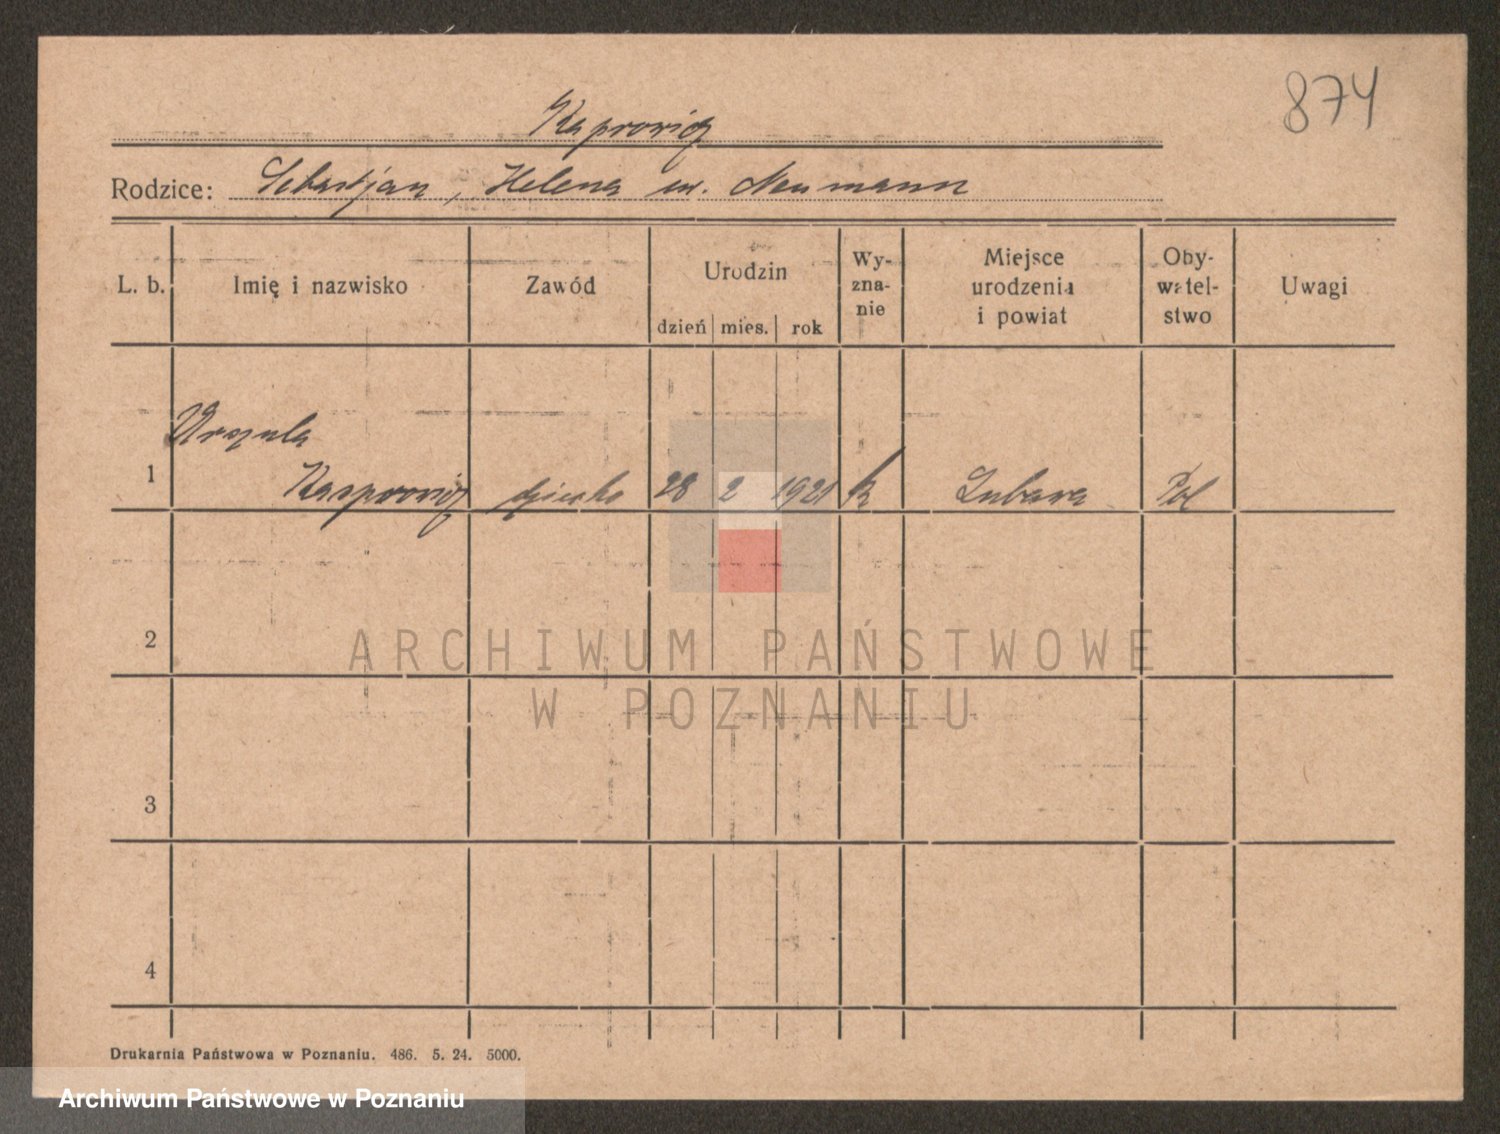 874
Kasprowicz
Rodzice: Sebastjan, Helena ur. Neumann
L. b. Imię i nazwisko Zawód Urodzin dzień mies. rok Wy-zna-nie Miejsce urodzenia i powiat Oby-watel-stwo Uwagi
Urszula
1 Kasprowicz dziecko 28 2 1921 k Lubawa Pol
2
3
4
ARCHIWUM PAŃSTWOWE
W POZNANIU
Drukarnia Państwowa w Poznaniu. 486. 5. 24. 5000.
Archiwum Państwowe w Poznaniu